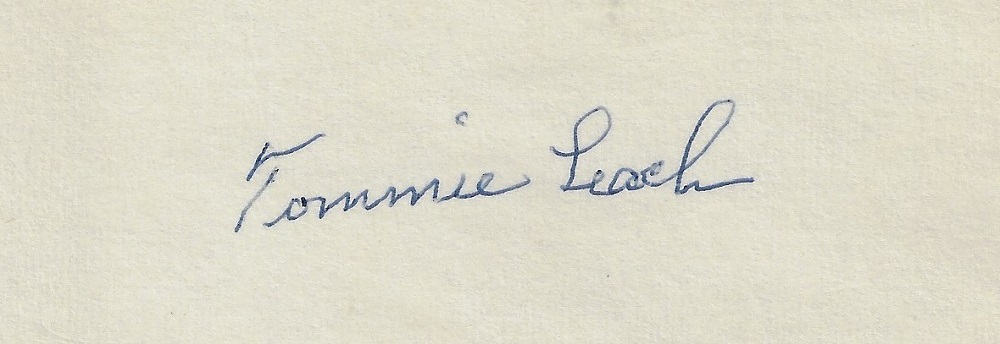 Tommie Leach